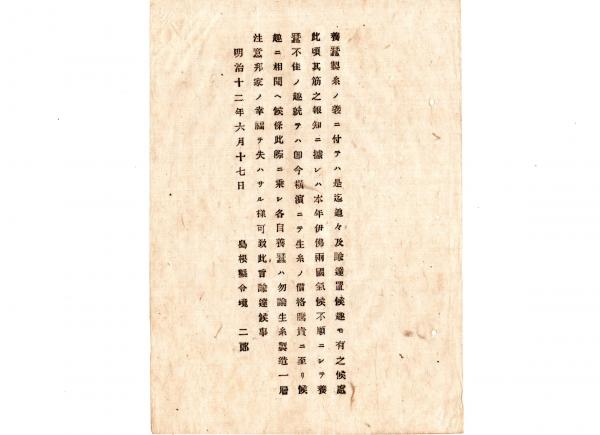 養蠶製糸ノ義ニ付テハ是迄追々及諭達置候趣モ有之候處
此頃其筋之報知ニ據レハ本年伊佛兩國氣候不順ニシテ養
蠶不佳ノ趣就テハ卽今橫濱ニテ生糸ノ價格騰貴ニ至リ候
趣ニ相聞ヘ候條此際ニ乘シ各自養蠶ハ勿論生糸製造一層
注意邦家ノ幸福ヲ失ハサル樣可致此旨諭達候事
明治十二年六月十七日　島根縣令境　二郎